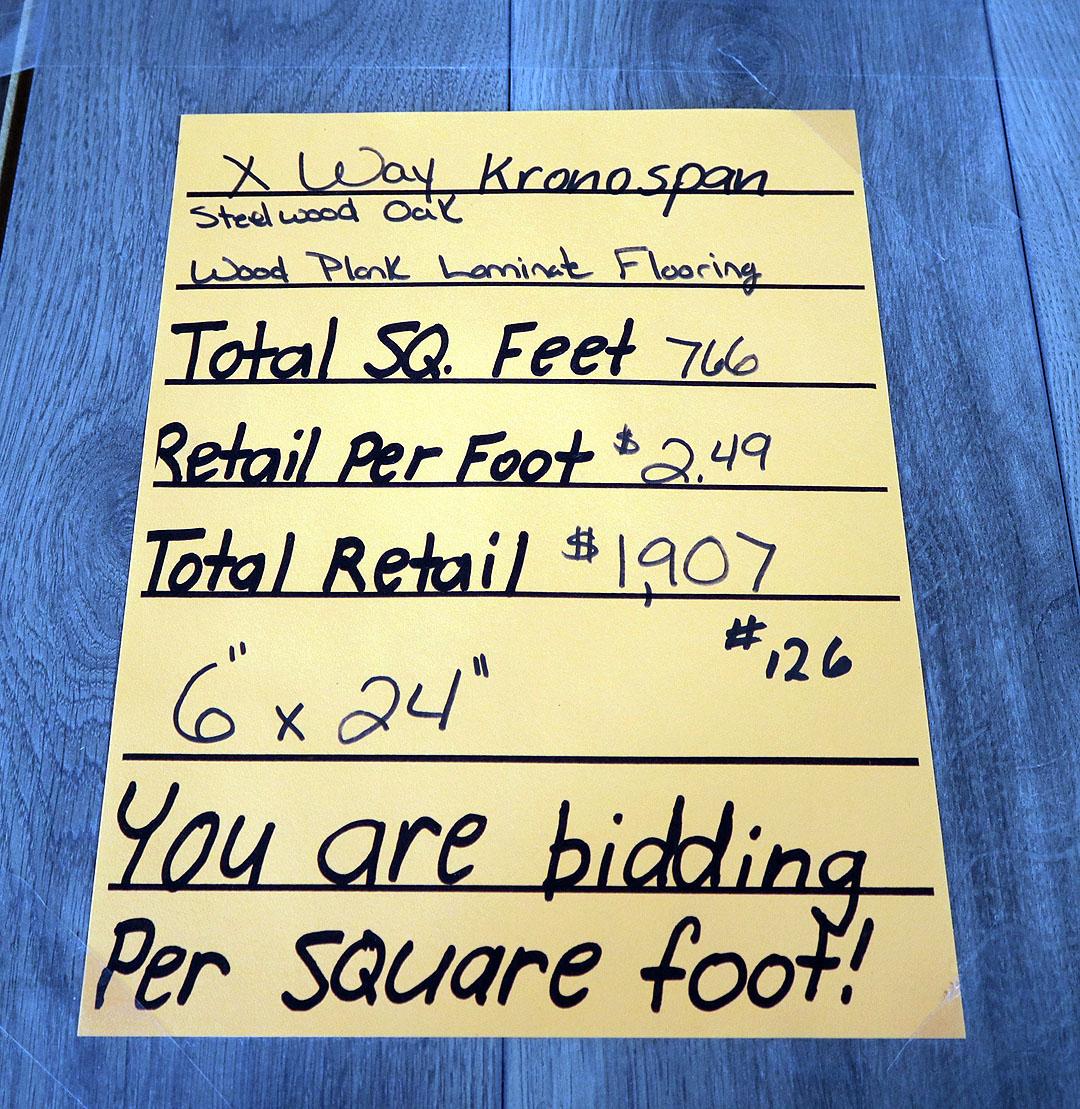 X Way Kronospan
Steelwood Oak
Wood Plank Laminate Flooring
Total SQ. Feet 766
Retail Per Foot $2.49
Total Retail $1,907
#126
6" x 24"
You are bidding
Per square foot!